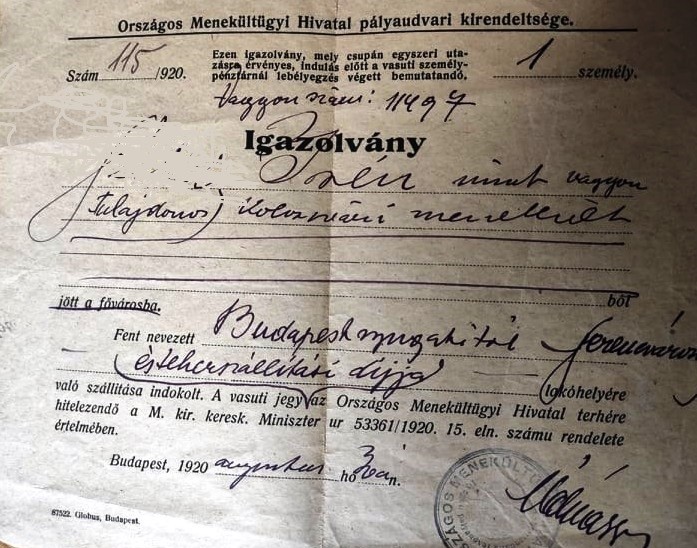 Országos Menekültügyi Hivatal pályaudvari kirendeltsége.
Szám 115/1920.
Ezen igazolvány, mely csupán egyszeri uta-
zásra érvényes, indulás előtt a vasuti személy-
pénztárnál lebélyegzés végett bemutatandó.
1 személy.
Vagyon szám: 11497
Igazolvány
Irén mint vagyon
tulajdonos) kolozsvári menekült
ből
jött a fővárosba.
Fent nevezett Budapest nyugatitól Ferencváros
és teherszállítási díjjá lakóhelyére
való szállítása indokolt. A vasuti jegy az Országos Menekültügyi Hivatal terhére
hitelezendő a M. kir. keresk. Miniszter ur 53361/1920. 15. eln. számu rendelete
értelmében.
Budapest, 1920 augusztus hó n.
ORSZÁGOS MENEKÜLT
87522. Globus, Budapest.